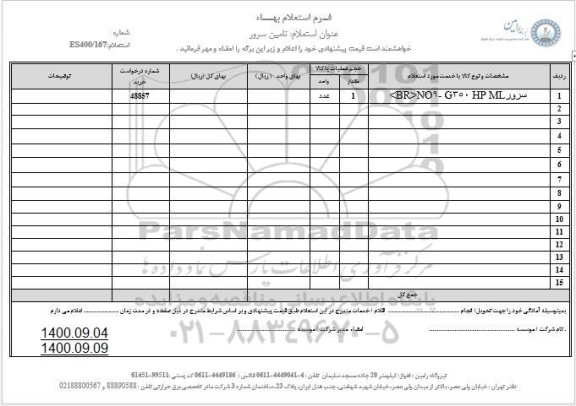 فرم استعلام بهاء
عنوان استعلام: تامین سرور
شماره استعلام: ES400/167
خواهشمند است قیمت پیشنهادی خود را اعلام و زیر این برگه را امضاء و مهر فرمائید.
ردیف مشخصات و نوع کالا یا خدمت مورد استعلام حجم عملیات یا کالا مقدار واحد بهای واحد (ریال) بهای کل (ریال) شماره درخواست خرید توضیحات
1 سرور NO۹- G۳۵۰ HP ML<BR> 1 عدد 48857
2
3
4
5
6
7
8
9
10
11
12
13
14
15
جمع کل
بدینوسیله آمادگی خود را جهت تحویل/ انجام اقلام / خدمات مندرج در این استعلام طبق قیمت پیشنهادی و بر اساس شرایط مندرج در ذیل صفحه و در مدت زمان اعلام می دارم
نام شرکت / موسسه امضاء مدیر شرکت / موسسه
1400.09.04
1400.09.09
ParsNamadData
مرکز فرآوری اطلاعات پارس نماد داده ها
پایگاه اطلاع رسانی مناقصه و مزایده
۰۲۱-۸۸۳۴۹۶۷۰-۵
نیروگاه رامین - اهواز: کیلومتر 20 جاده مسجد سلیمان تلفن: 4-4449041-0611 فاکس: 4449186-0611 کد پستی: 99511-61451
دفتر تهران: خیابان ولی عصر، بالاتر از میدان ولی عصر، خیابان شهید شهامتی، جنب هتل ایران، پلاک 23، ساختمان شماره 3 شرکت مادر تخصصی برق حرارتی تلفن: 88890588 و 02188800567